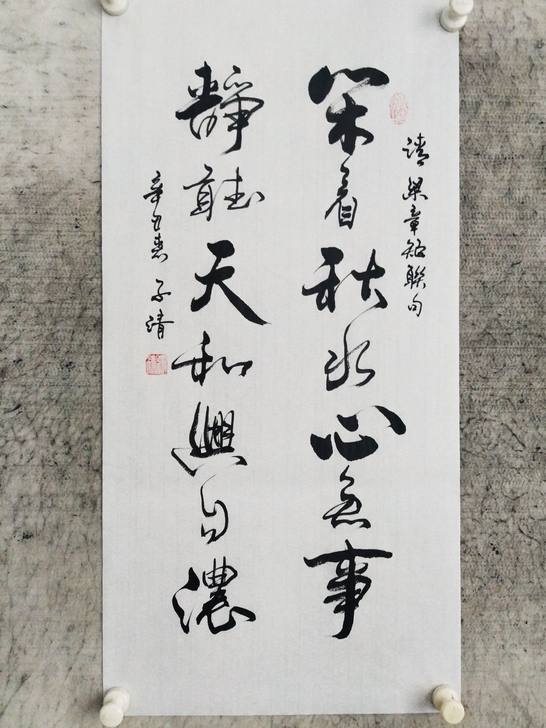 清梁章鉅聯句
閑看秋水心無事
靜聽天和興自濃
辛丑春 子清